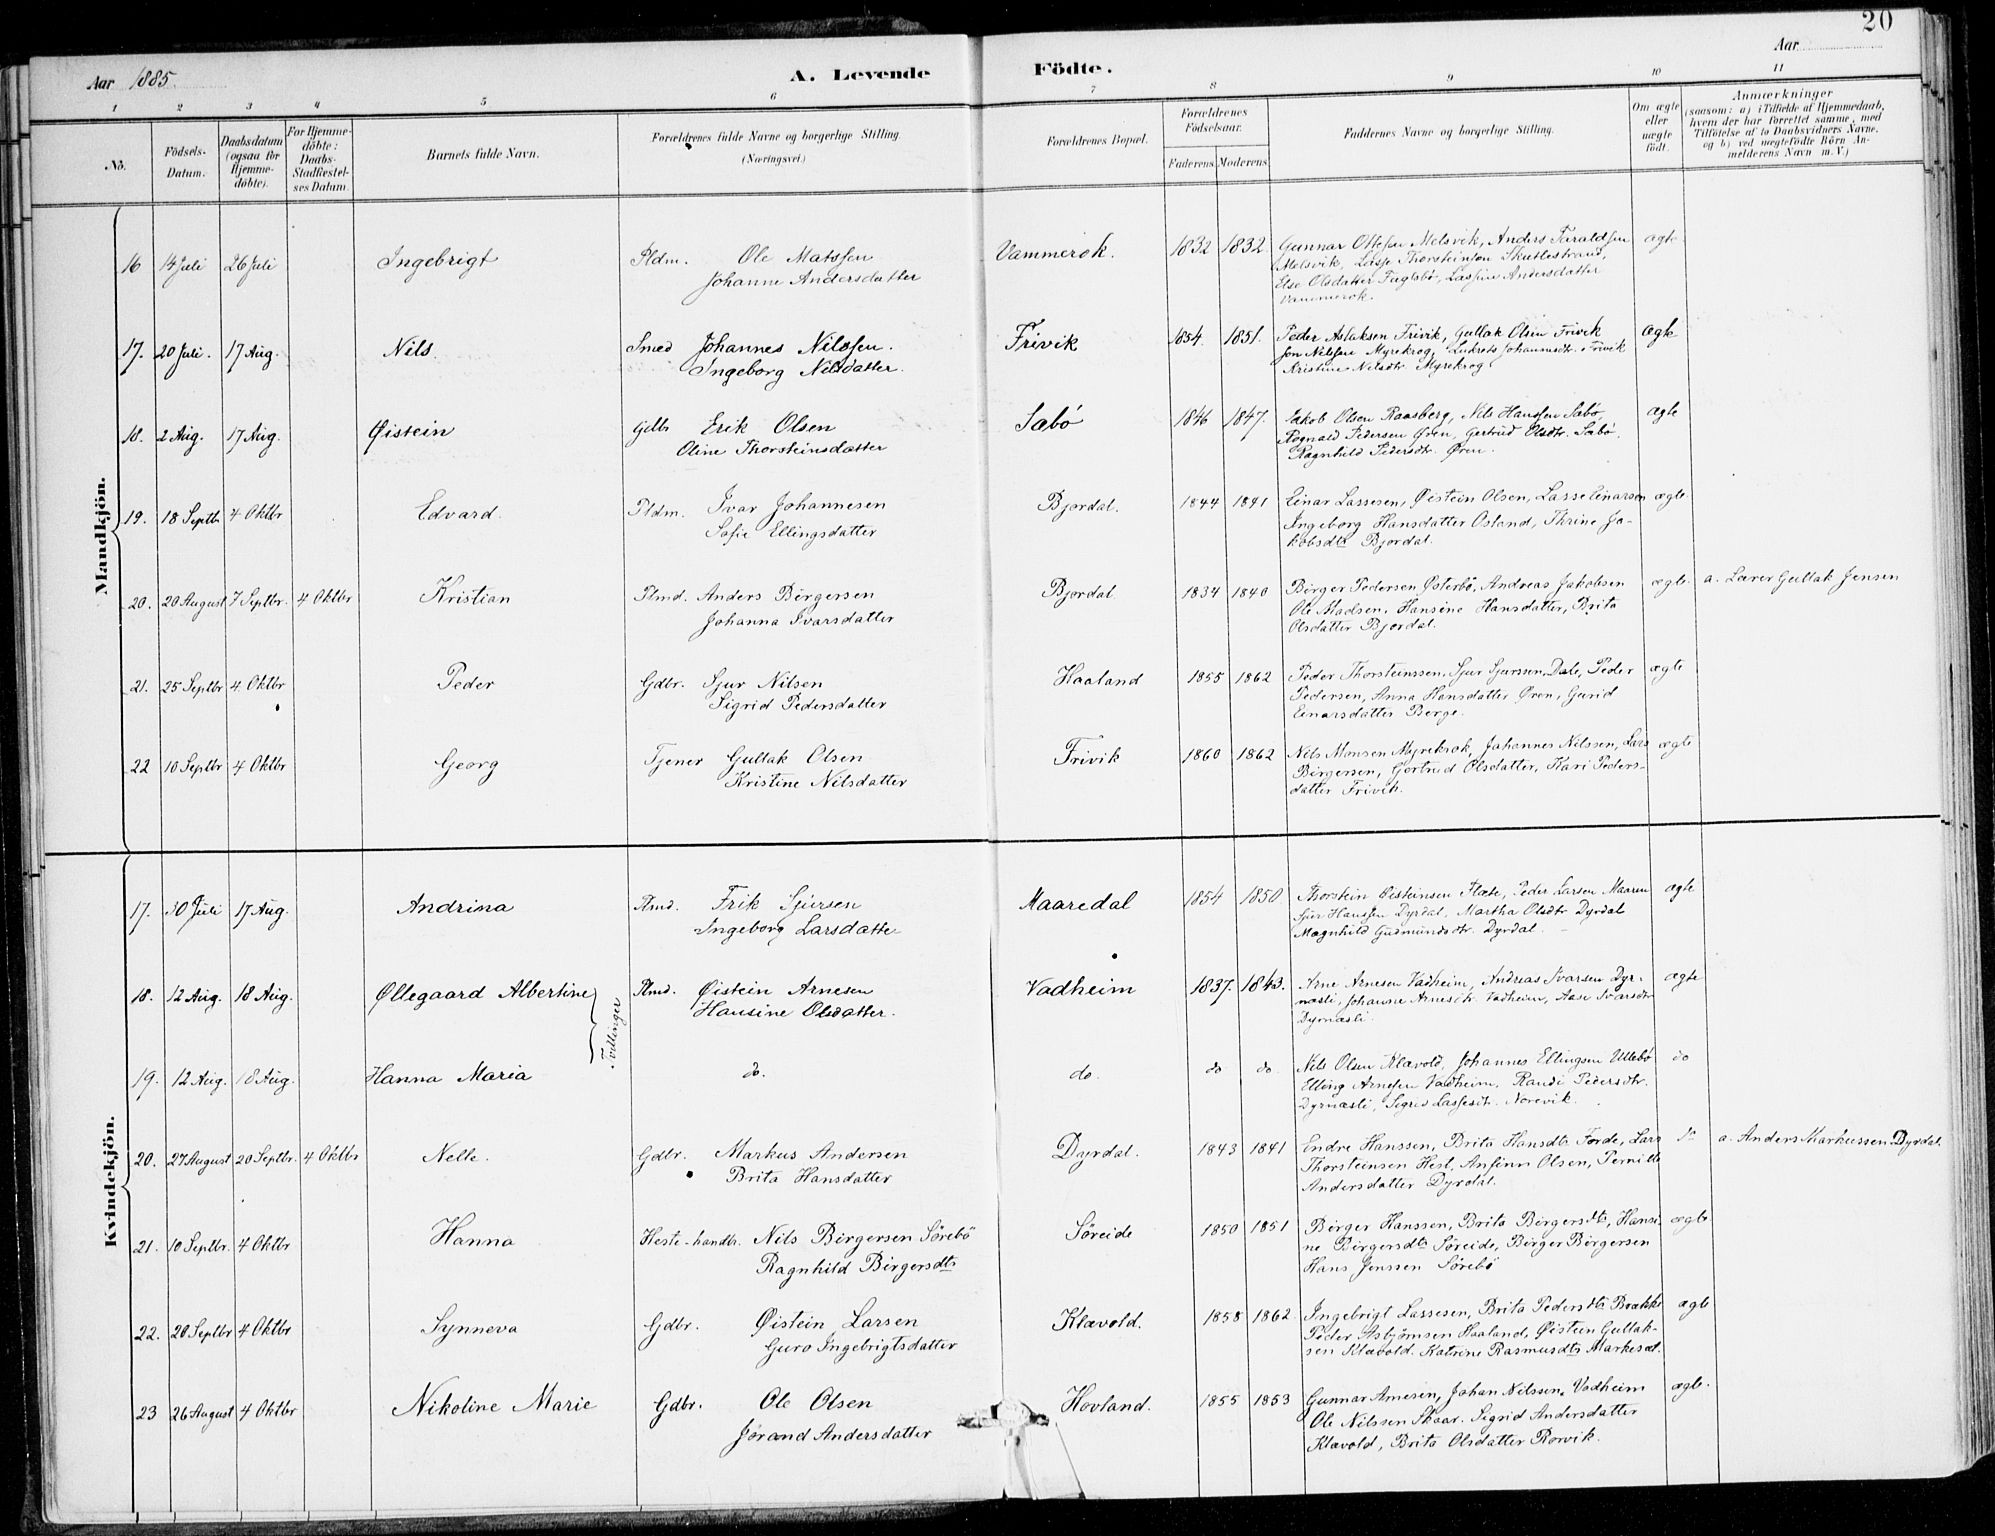 20
Aar 1885. A. Levende Födte. Aar
1 2 3 4 5 6 7 8 9 10 11
No. Födsels-Datum. Daabsdatum (ogsaa for Hjemme-döbte). For Hjemme-döbte: Daabs-Stadfestel-ses Datum. Barnets fulde Navn. Forældrenes fulde Navne og borgerlige Stilling. (Næringsvei.) Forældrenes Bopæl. Forældrenes Födselsaar. Faderens Moderens Faddernes Navne og borgerlige Stilling. Om ægte eller uægte födt. Anmærkninger (saasom: a) i Tilfælde af Hjemmedaab, hvem der har forrettet samme, med Tilföielse af to Daabsvidners Navne, og b) ved uægtefödte Börn An-melderens Navn m. V.)
Mandkjön.
16 14 Juli 26 Juli Ingebrigt Pldm. Ole Matssen Vammerok. 1832 1832 Gunnar Ottesen Melsvik, Anders Taraldsen ægte
Johanne Andersdatter Melsvik, Lasse Thorsteinsen Skutlestrand,
Else Olsdatter Fuglsbø, Lassine Andersdatter
Vammerok.
17. 20 Juli. 17 Aug. Nils. Smed Johannes Nilssen. Frivik 1854. 1851. Peder Aslaksen Frivik, Gullak Olsen Frivik ægte
Ingeborg Nilsdatter. Jon Nilssen Myrekrog, Lukrets Johannesdtr. Frivik
Kristine Nilsdtr Myrekrog
18. 2 Aug. 17 Aug. Øistein Gdb. Erik Olsen Sæbø 1846 1847. Jakob Olsen Raasberg, Nils Hanssen Sæbø, ægte
Oline Thorsteinsdatter Rognald Pedersen Øren, Gertrud Olsdtr. Sæbø.
Ragnhild Pedersdtr. Øren.
19. 18 Septb 4 Oktbr Edvard. Pldm. Ivar Johannesen Bjordal. 1844 1841 Einar Lassesen, Øistein Olsen, Lasse Einarsen ægte
Sofie Ellingsdatter Ingeborg Hansdatter Osland, Thrine Ja-
kobsdtr Bjordal.
20. 20 August 7 Septbr. 4 Oktbr Kristian Plmd. Anders Børgersen Bjordal 1834 1840 Børger Pedersen Østerbø, Andreas Jakobsen ægte. a. Lærer Gullak Jensen
Johanna Ivarsdatter Ole Madsen, Hansine Hansdatter, Brita
Olsdatter Bjordal.
21. 25 Septbr 4. Oktbr Peder Gdbr. Sjur Nilsen Haaland 1855 1862 Peder Thorsteinssen, Sjur Sjurssen Dale, Peder ægte
Sigrid Pedersdatter Pedersen, Anna Hansdatter Øren, Gurid
Einarsdatter Berge.
22 10 Septbr 4 Oktbr Georg Tjener Gullak Olsen Frivik 1860 1862 Nils Monsen Myrekrok, Johannes Nilssen, Lars ægte
Kristine Nilsdatter Børgersen, Gertrud Olsdatter, Kari Peders-
datter Frivik.
Kvindekjön.
17. 30 Juli 17 Aug. Andrina Plmd. Erik Sjursen Maaredal 1854 1850 Thorstein Øisteinsen Flæte, Peder Larsen Maaren ægte
Ingeborg Larsdatte Sjur Hanssen Dyrdal, Martha Olsdtr Dyrdal
Magnhild Gudmundsdtr. Dyrdal.
18. 12 Aug. 18 Aug. Øllegaard Albertine Plmd. Øistein Arnesen Vadheim 1837. 1843. Arne Arnesen Vadheim, Andreas Ivarsen Dyr- ægte
Tvillinger Hansine Olsdatter. næsli, Johanne Arnesdtr. Vadheim, Aase Ivarsdtr
Dyrnæsli.
19. 12 Aug. 18 Aug. Hanna Maria do. do. do do. Nils Olsen Klævold, Johannes Ellingsen Ullebø do
Elling Arnesen Vadheim, Randi Pedersdtr.
Dyrnæsli, Sigrid Lassesdtr. Norevik.
20. 27 August 20 Septbr. 4 Oktbr Nelle. Gdbr. Markus Andersen Dyrdal. 1843 1841 Endre Hanssen, Brita Hansdtr Førde, Lars do a. Anders Markussen Dyrdal
Brita Hansdatter Thorsteinsen Hest, Ansfinn Olsen, Pernille
Andersdatter Dyrdal.
21. 10 Septbr. 4 Oktbr Hanna Heste-handlr. Nils Børgersen Sørebø Søreide 1850 1851 Børger Hanssen, Brita Børgersdtr, Hansi- ægte
Ragnhild Børgersdtr ne Børgersdtr Søreide, Børger Børgersen
Hans Jenssen Sørebø
22. 20 Septbr 4 Oktbr Synneva Gdbr. Øistein Larsen Klævold. 1858 1862 Ingebrigt Lassesen, Brita Pedersdtr Brække ægte
Guro Ingebrigtsdatter Peder Asbjørnsen Haaland, Øistein Gullak-
sen Klævold. Katrine Rasmusdtr Markesæt.
23 26 August 4 Oktbr Nikoline Marie Gdbr. Ole Olsen Hovland. 1855 1853 Gunnar Arnesen, Johan Nilssen, Vadheim ægte.
Jørand Andersdatter Ole Nilssen Skaar. Sigrid Andersdatter
Klævold, Brita Olsdatter Rørvik.